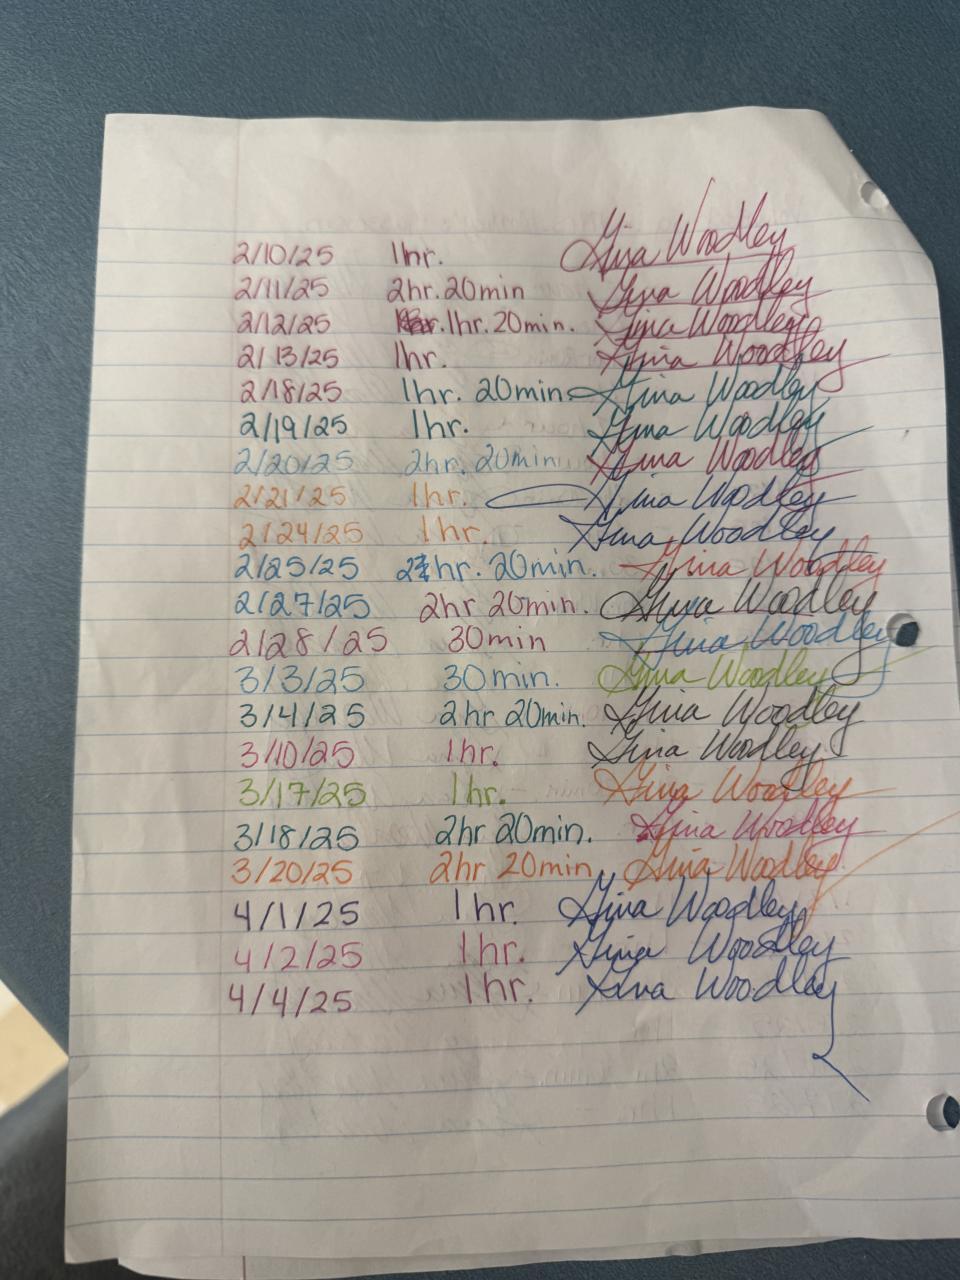 2/10/25 1hr. Gina Woodley
2/11/25 2hr. 20min Gina Woodley
2/12/25 1hr. 20min. Gina Woodley
2/13/25 1hr. Gina Woodley
2/18/25 1hr. 20min Gina Woodley
2/19/25 1hr. Gina Woodley
2/20/25 2hr. 20min Gina Woodley
2/21/25 1hr. Gina Woodley
2/24/25 1hr. Gina Woodley
2/25/25 2hr. 20min. Gina Woodley
2/27/25 2hr 20min. Gina Woodley
2/28/25 30min Gina Woodley
3/3/25 30min. Gina Woodley
3/4/25 2hr 20min. Gina Woodley
3/10/25 1hr. Gina Woodley
3/17/25 1hr. Gina Woodley
3/18/25 2hr 20min. Gina Woodley
3/20/25 2hr 20min. Gina Woodley
4/1/25 1hr. Gina Woodley
4/2/25 1hr. Gina Woodley
4/4/25 1hr. Gina Woodley